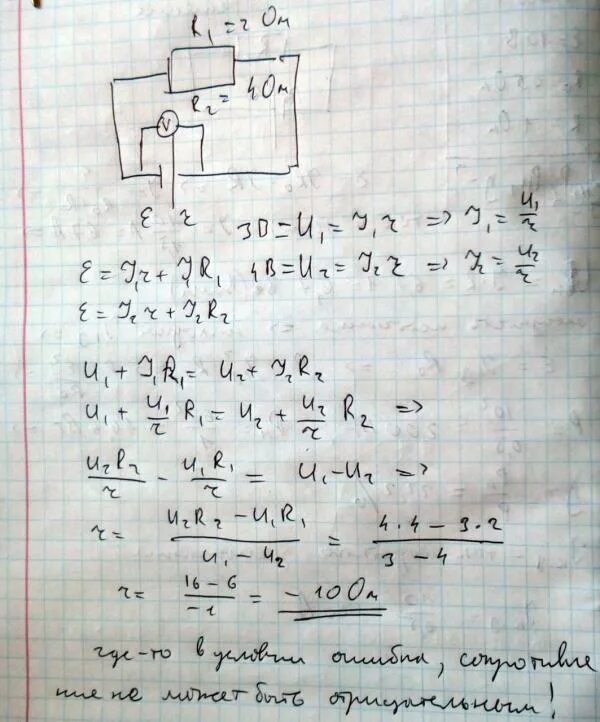 R₁ = 2 Ом
R₂ = 4 Ом
V
ε r
3В = U₁ = I₁r => I₁ = U₁/r
ε = I₁r + I₁R₁ 4В = U₂ = I₂r => I₂ = U₂/r
ε = I₂r + I₂R₂
U₁ + I₁R₁ = U₂ + I₂R₂
U₁ + U₁/r R₁ = U₂ + U₂/r R₂ =>
U₂R₂/r - U₁R₁/r = U₁ - U₂ =>
r = (U₂R₂ - U₁R₁)/(U₁ - U₂) = (4·4 - 3·2)/(3 - 4)
r = (16 - 6)/(-1) = -10 Ом
где-то в условии ошибка, сопротивле
ние не может быть отрицательным!